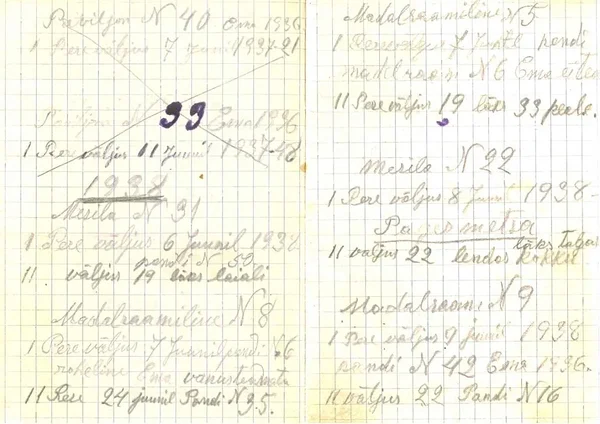 Paviljon N 40 Ema 1936
1 Pere väljus 7 juunil 1937-21
Paviljon N 33 Ema 1936
1 Pere väljus 11 Juunil 1937-48
1938
Mesila N 31
1 Pere väljus 6 Juunil 1938
pandi N 53
11 väljus 19 läks laiali
Madalraamiline N 8
1 Pere väljus 7 Juunil pandi N 6
roheline Ema vanus teadmata
11 Pere 24 juunil Pandi N 35.
Madalraamiline N 5
1 Pere väljus 7 Juunil pandi
madalraam N 6 Ema
11 Pere väljus 19 läks 33 peale.
Mesila N 22
1 Pere väljus 8 Juunil 1938-
Pages metsa
11 väljus 22 lendas läks tagasi
kokku
Madalraam N 9
1 Pere väljus 9 Juunil 1938
pandi N 42 Ema 1936.
11 väljus 22 Pandi N 16